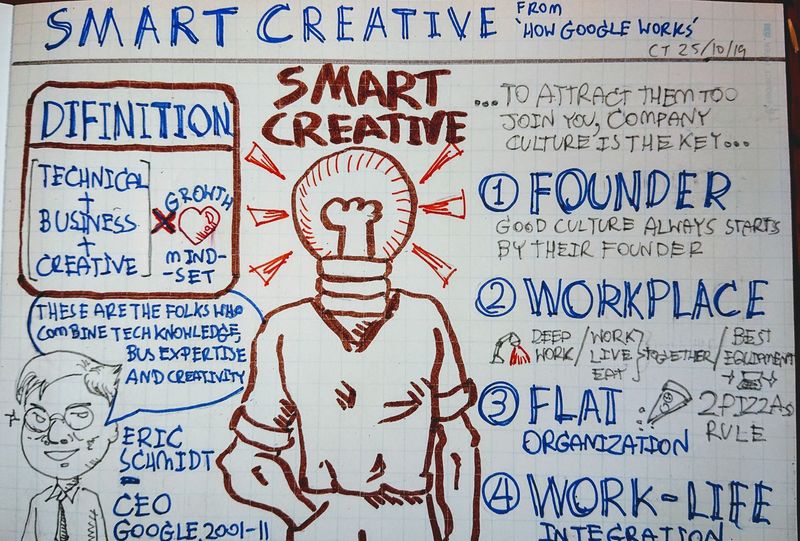 SMART CREATIVE FROM
'HOW GOOGLE WORKS'
CT 25/10/19
DIFINITION
[TECHNICAL
+
BUSINESS
+
CREATIVE]
X GROWTH
MIND-
-SET
THESE ARE THE FOLKS WHO
COMBINE TECH KNOWLEDGE,
BUS EXPERTISE
AND CREATIVITY
ERIC
SCHMIDT
-
CEO
GOOGLE, 2001-11
SMART
CREATIVE
...TO ATTRACT THEM TOO
JOIN YOU, COMPANY
CULTURE IS THE KEY...
① FOUNDER
GOOD CULTURE ALWAYS STARTS
BY THEIR FOUNDER
② WORKPLACE
DEEP
WORK/
WORK
LIVE
EAT
} TOGETHER/
BEST
EQUIPMENT
③ FLAT
ORGANIZATION
2 PIZZAs
RULE
④ WORK-LIFE
INTEGRATION